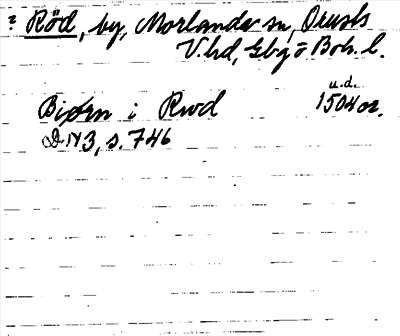 ? Röd, by, Morlanda sn, Orusts
V. hd, Gbg o Boh. l.
u.d.
Bjørn i Rwd 1504 or.
DN 3, s. 746